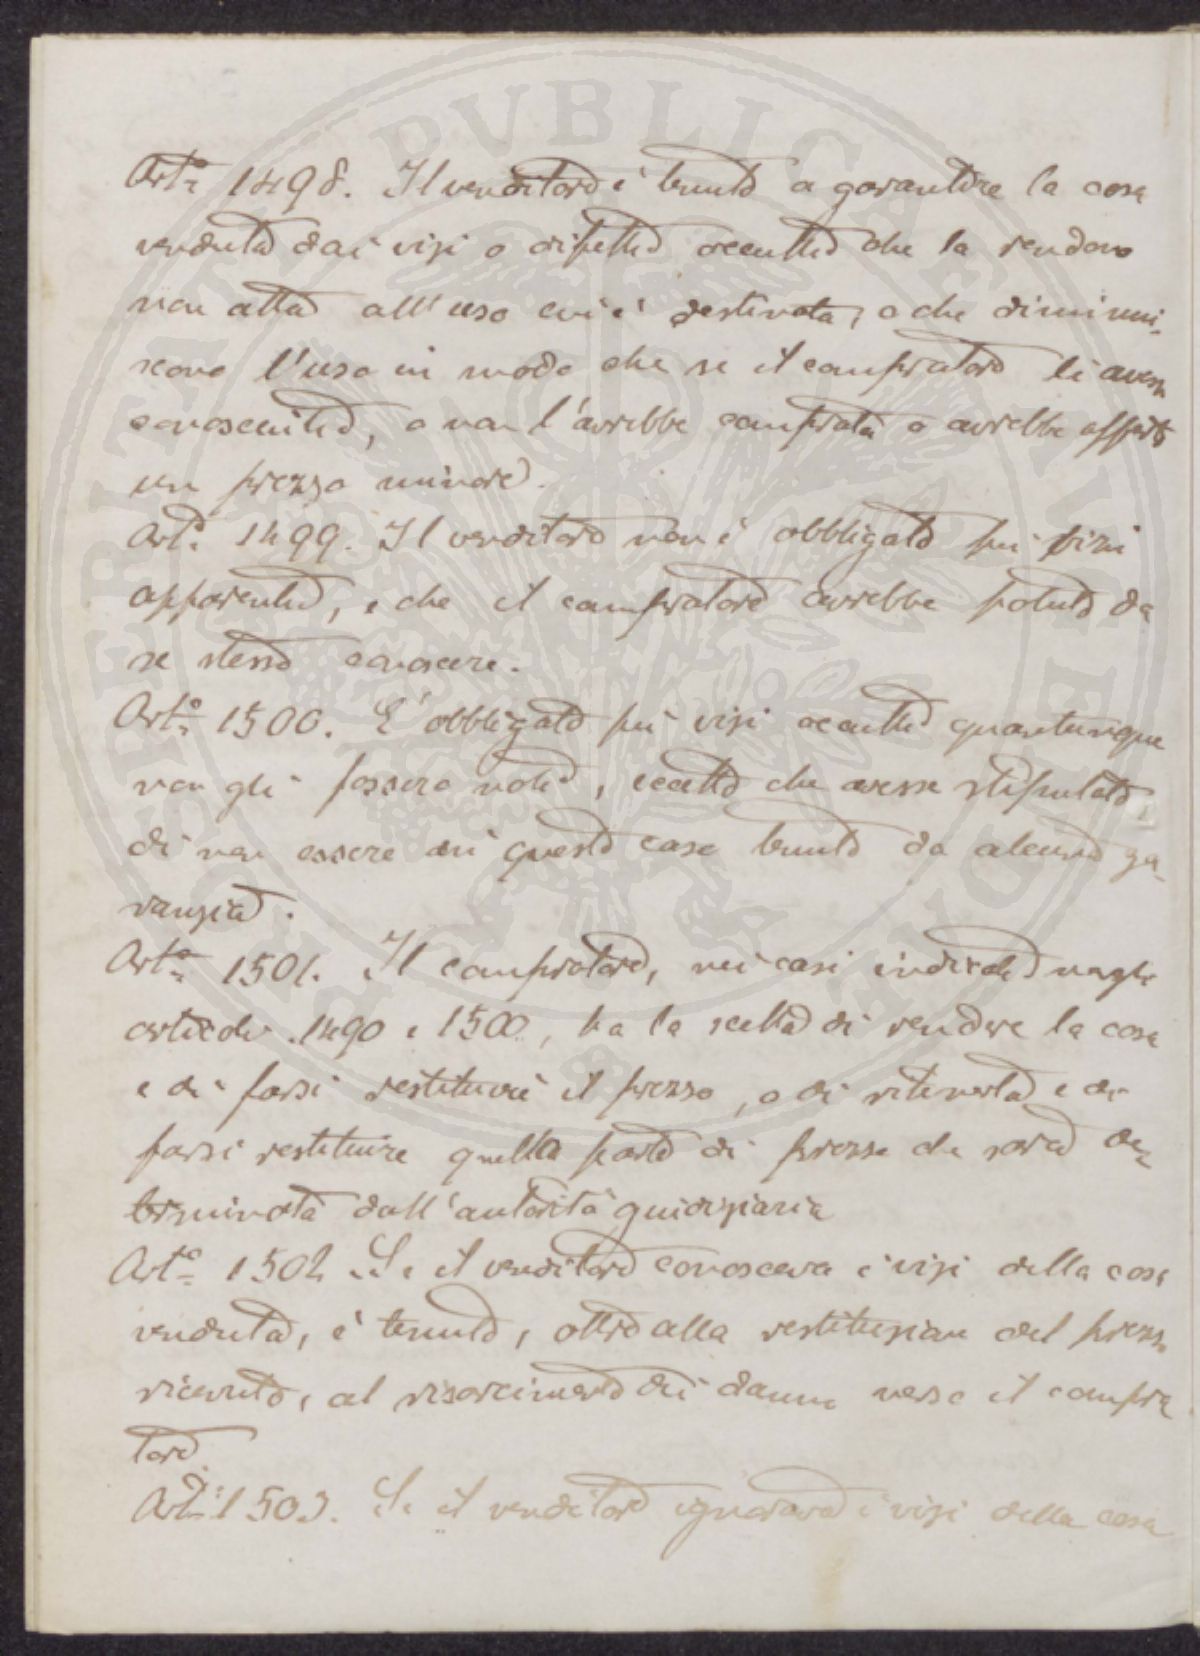 Art.º 1498. Il venditore è tenuto a garantire la cosa
venduta dai vizi o difetti occulti che la rendono
non atta all'uso cui è destinata, o che diminui-
scono l'uso in modo che se il compratore li avesse
conosciuti, o non l'avrebbe comprata o avrebbe offerto
un prezzo minore.
Art.º 1499. Il venditore non è obbligato pei vizi
apparenti, e che il compratore avrebbe potuto da
se stesso conoscere.
Art.º 1500. È obbligato pei vizi occulti quantunque
non gli fossero noti, eccetto che avesse stipulato
di non essere in questo caso tenuto da alcuna ga-
ranzia.
Art.º 1501. Il compratore, nei casi indicati negli
articoli 1490 e 1500, ha la scelta di rendere la cosa
e di farsi restituire il prezzo, o di ritenerla e di
farsi restituire quella parte di prezzo che sarà de-
terminata dall'autorità giudiziaria
Art.º 1502. Se il venditore conosceva i vizi della cosa
venduta, è tenuto, oltre alla restituzione del prezzo
ricevuto, al risarcimento dei danni verso il compra
tore.
Art.º 1503. Se il venditore ignorava i vizi della cosa
PROSPERITATE PVBLICAE AVGENDAE